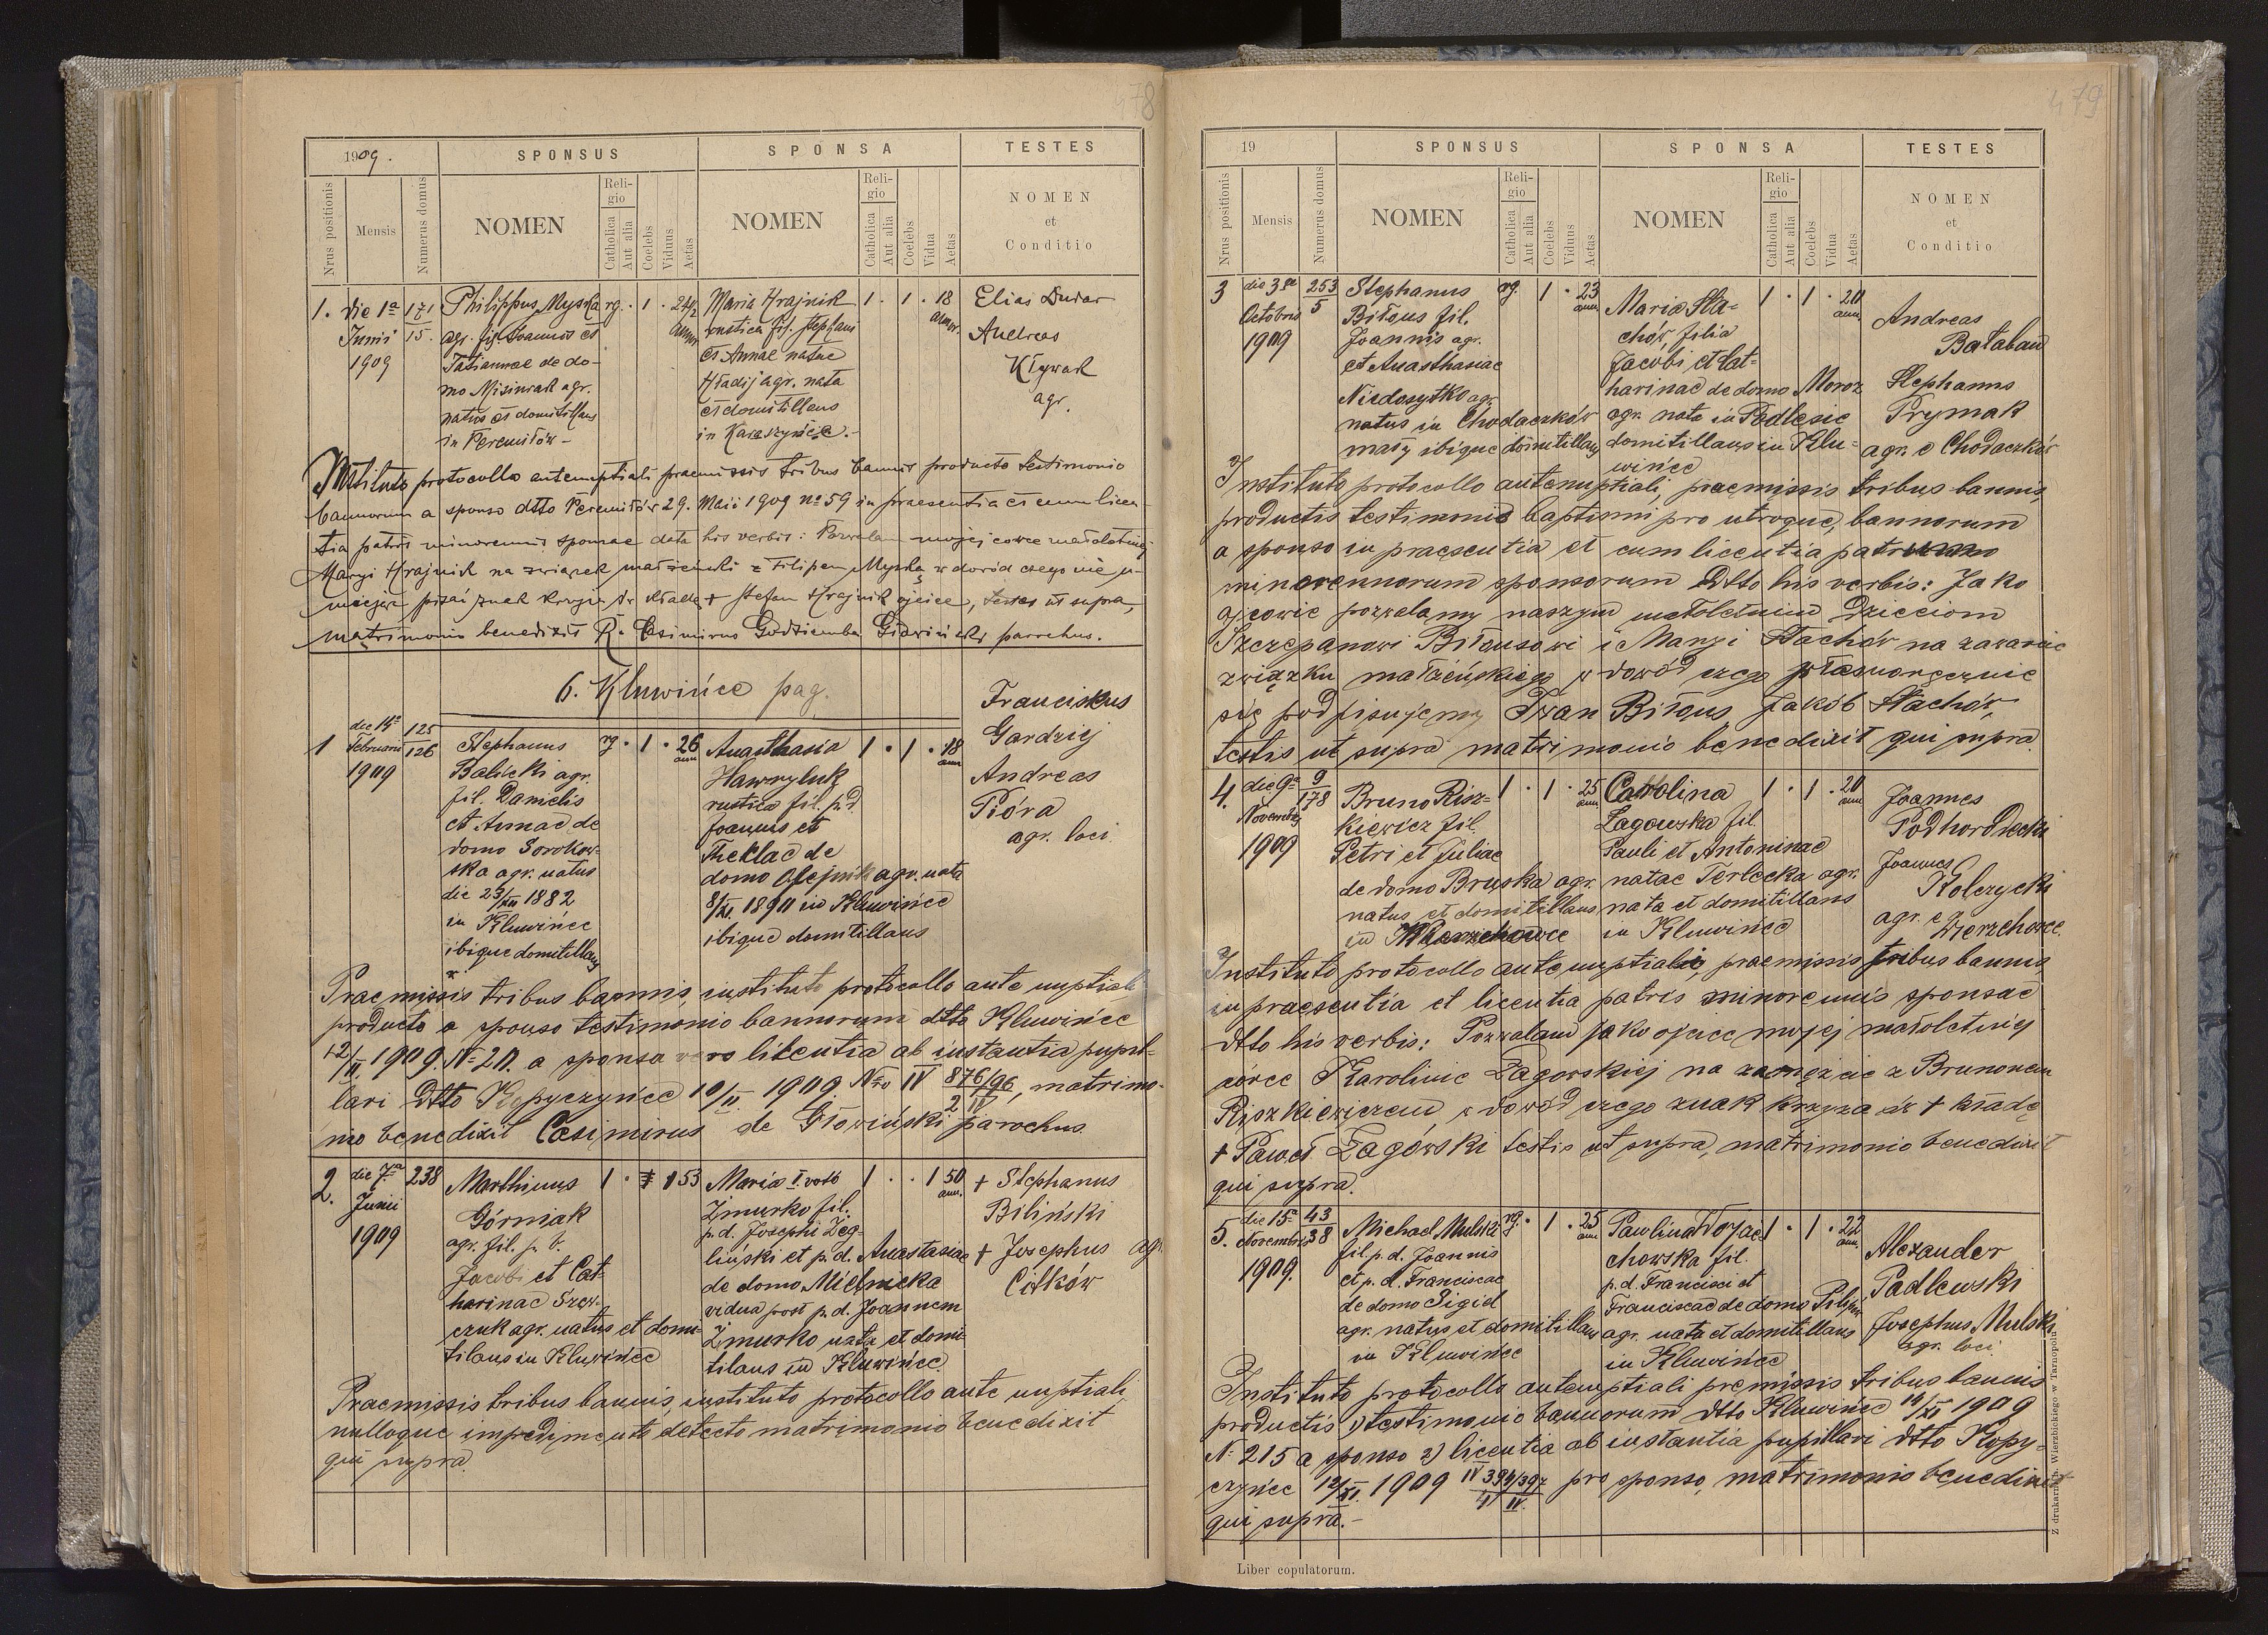 478
1909.
SPONSUS
SPONSA
TESTES
Nrus positionis
Mensis
Numerus domus
NOMEN
Reli-
gio
Catholica
Aut alia
Coelebs
Viduus
Aetas
NOMEN
Reli-
gio
Catholica
Aut alia
Coelebs
Vidua
Aetas
NOMEN
et
Conditio
1. die 1a
Junii
1909
171
15.
Philippus Myszka
agr. fil. Joannis et
Tatiannae de do-
mo Misiurak agr.
natus et domitillans
in Peremiłów -
rg. · 1 · 24½
annor
Maria Hrajnik
rustica fil. Stephani
et Annae natae
Hładij agr. nata
et domitillans
in Karaszyńce. -
1 · 1 · 18
annor.
Elias Dudar
Andreas
Kływak
agr.
Instituto protocollo antenuptiali praemissis tribus bannis producto testimonio
bannorum a sponso dtto Peremiłów 29. Maii 1909 No 59 in praesentia et cum licen-
tia patris minorennis sponsae data his verbis: Pozwalam mojej córce małoletniej
Maryi Hrajnik na związek małżeński z Filipem Myszką w dowód czego nie u-
miejąc pisać znak krzyża św kładę + Stefan Hrajnik ojciec, testes ut supra,
matrimonio benedixit R. Casimirus Godziemba Głowiński parochus.
6. Kluwińce pag.
1
die 14a
Februarii
1909
125
126
Stephanus
Balicki agr.
fil. Danielis
et Annae de
domo Sorokow-
ska agr. natus
die 23/XII 1882
in Kluwińce
ibique domitillans
rg · 1 · 26
ann
Anasthasia
Hawryluk
rustica fil. p.d.
Joannis et
Theklae de
domo Olejnik agr. nata
8/XI. 1890 in Kluwińce
ibique domitillans
1 · 1 · 18
ann
Franciskus
Gardziej
Andreas
Pióra
agr. loci
Praemissis tribus bannis, instituto protocollo ante nuptiali
producto a sponso testimonio bannorum dtto Kluwińce
12/II. 1909. No 20. a sponsa vero licentia ab instantia pupil-
lari dtto Kopyczyńce 10/II 1909 Nro IV 876/96, matrimo-
2 IV
nio benedixit Casimirus de Głowiński parochus
2.
die 7a
Junii
1909
238
Marthinus
Górniak
agr. fil. p. d.
Jacobi et Cat-
harinae Szew-
czuk agr. natus et domi-
tilans in Kluwińce
1 · 1 53
Maria I. voto
Żmurko fil.
p.d. Josephi Zeg-
liński et p.d. Anastasiae
de domo Mielnicka
vidua post p.d. Joannem
Żmurko nata et domi-
tilans in Kluwińce.
1 · · 1 50
ann.
+ Stephanus
Biliński
+ Josephus agr.
Ciłków
Praemissis tribus bannis, instituto protocollo ante nuptiali,
nulloque impedimento detecto matrimonio benedixit
qui supra.
479
19
SPONSUS
SPONSA
TESTES
Nrus positionis
Mensis
Numerus domus
NOMEN
Reli-
gio
Catholica
Aut alia
Coelebs
Viduus
Aetas
NOMEN
Reli-
gio
Catholica
Aut alia
Coelebs
Vidua
Aetas
NOMEN
et
Conditio
3
die 3a
Octobris
1909
253
5
Stephanus
Biłous fil.
Joannis agr.
et Anasthasiae
Niedosytko agr.
natus in Chodaczków
mały ibique domitillans
rg. 1 · 23
ann
Maria Sta-
chów, filia
Jacobi et Cat-
harinae de domo Moroz
agr. nata in Podlesie
domitillans in Klu-
wińce
1 · 1 · 20
ann
Andreas
Bałaban
Stephanus
Prymak
agr. e Chodaczków
Instituto protocollo antenuptiali, praemissis tribus bannis,
productis testimonio baptismi pro utroque, bannorum
a sponso in praesentia et cum licentia patrum
minorennorum sponsorum dtto his verbis: Jako
ojcowie pozwalamy naszym małoletnim Dzieciom
Szczepanowi Biłousowi i Maryi Stachów na zawarcie
związku małżeńskiego w dowód czego własnoręcznie
się podpisujemy Iwan Biłous, Jakób Stachów,
testis ut supra matrimonio benedixit qui supra.
4.
die 9a
Novembris
1909
9
178
Bruno Risz-
kiewicz fil.
Petri et Juliae
de domo Bruska agr.
natus et domitillans
in Wierzchowce
1 · 1 · 25
ann
Carolina
Zagowska fil.
Pauli et Antoninae
natae Terlecka agr.
nata et domitillans
in Kluwińce
1 · 1 · 20
ann
Joannes
Podhorodecki
Joannes
Kolczycki
agr. e
Wierzchowce.
Instituto protocollo antenuptiali, praemissis tribus bannis,
in praesentia et licentia patris minorennis sponsae
dtto his verbis: Pozwalam jako ojciec mojej małoletniej
córce Karolinie Zagorskiej na zamężcie z Brunonem
Riszkiewiczem, w dowód czego znak krzyża św + kładę
+ Paweł Zagórski testis ut supra, matrimonio benedixit
qui supra.
5.
die 15a
Novembris
1909.
43
38
Michael Mulski
fil. p. d. Joannis
et p. d. Franciscae
de domo Sigid
agr. natus et domitillans
in Kluwińce
rg. · 1 · 25
ann
Paulina Wojcie-
chowska fil.
p.d. Francisci et
Franciscae de domo
agr. nata et domitillans
in Kluwińce
1 · 1 · 22
ann.
Alexander
Padlewski
Josephus Mulski
agr. loci
Instituto protocollo antenuptiali premissis tribus bannis
productis 1) testimonio bannorum dtto Kluwińce 14/XI 1909
N. 215 a sponso 2) licentia ab instantia pupillari dtto Kopy-
czyńce 12/XI. 1909 IV 394/397 pro sponso, matrimonio benedixit
qui supra. -
Liber copulatorum.
Z drukarni Wierzbickiego w Tarnopolu